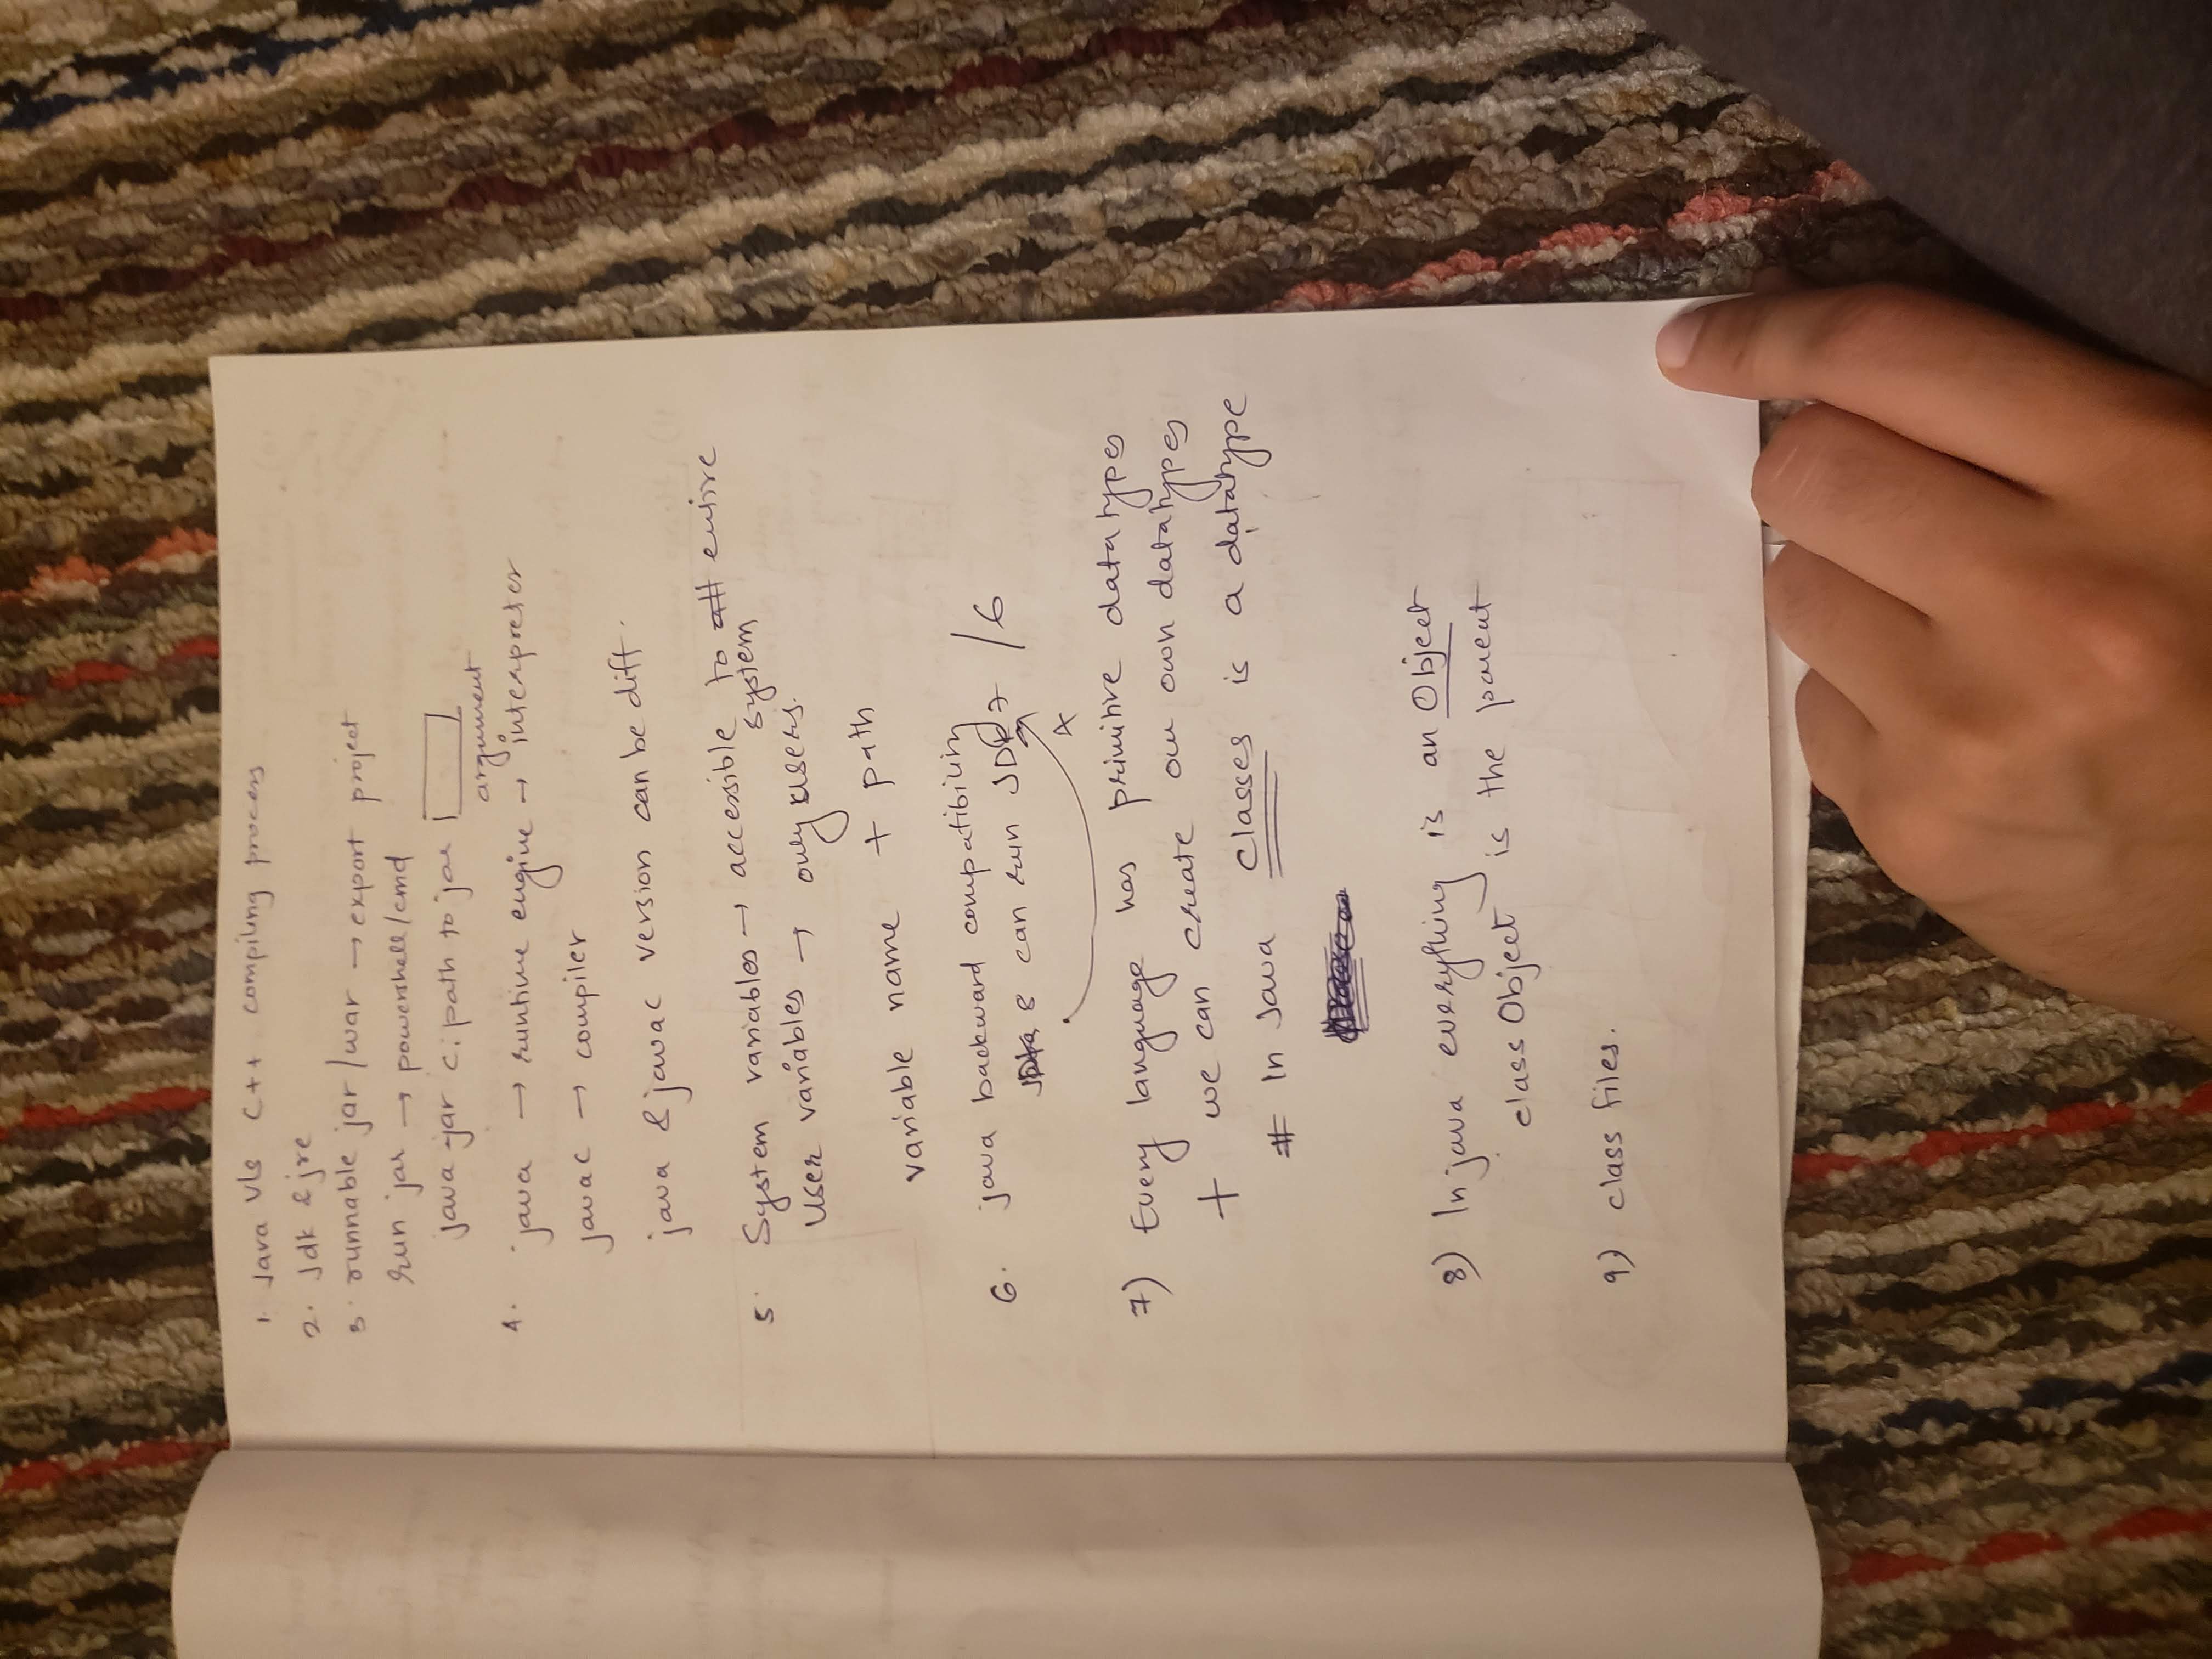 1. Java v/s C++ compiling process
2. Jdk & jre
3. runnable jar/war → export project
run jar → powershell/cmd
java -jar c: path to jar
argument
4. java → runtime engine → interpreter
javac → compiler
java & javac version can be diff.
5. System variables → accessible to all entire
system
User variables → only users.
variable name + path
6. java backward compatibility
8 can run JDK 7 / 6
7) Every language has primitive datatypes
+ we can create our own datatypes
# In Java Classes is a datatype
8) In java everything is an Object
class Object is the parent
9) class files.